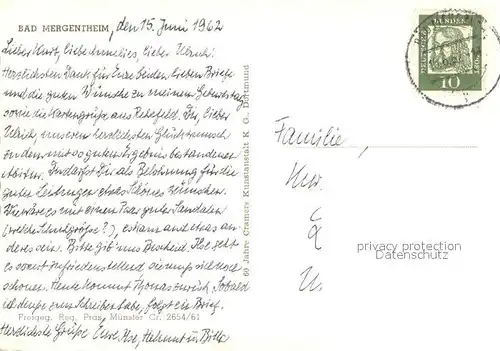 BAD MERGENTHEIM, den 15. Juni 1962
Lieber Kurt, liebe Annelies, lieber Ulrich!
Herzlichsten Dank für Eure beiden lieben Briefe
und die guten Wünsche zu meinem Geburtstag
sowie die Kartengrüße aus Rehefeld. Dir, lieber
Ulrich, unseren herzlichsten Glückwunsch
zu dem mit so gutem Ergebnis bestandenen
Abitur. Du darfst Dir als Belohnung für die
guten Leistungen etwas Schönes wünschen.
Wie wäre es mit einem Paar guter Sandalen
(welche Schuhgröße?), es kann auch etwas an-
deres sein. Bitte gib' uns Bescheid. Ilse geht
es soweit zufriedenstellend, sie muß sich noch
schonen. Heute kommt Thomas zurück. Sobald
ich dazu zum Schreiben habe, folgt ein Brief.
Freigeg. Reg. Präs. Münster Cr. 2654/61
Herzlichste Grüße Eure Ilse, Helmut u.
60 Jahre Cramers Kunstanstalt K. G., Dortmund
DEUTSCHE BUNDESPOST
10
Familie
privacy protection
ansichtskarten